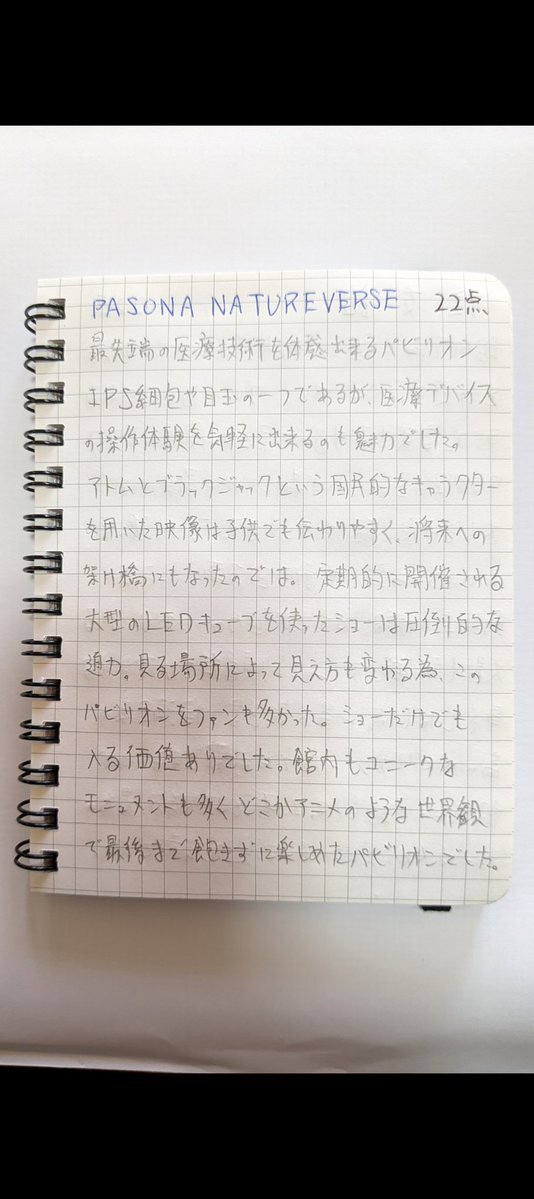 PASONA NATUREVERSE 22点
最先端の医療技術を体感出来るパビリオン
IPS細包や目玉の一つであるが、医療デバイス
の操作体験を気軽に出来るのも魅力でした。
アトムとブラックジャックという国民的なキャラクター
を用いた映像は子供でも伝わりやすく、将来への
架け橋にもなったのでは。定期的に開催される
大型のLEDキューブを使ったショーは圧倒的な
迫力。見る場所によって見え方も変わる為、この
パビリオンをファンも多かった。ショーだけでも
入る価値ありでした。館内もユニークな
モニュメントも多くどこかアニメのような世界観
で最後まで飽きずに楽しめたパビリオンでした。